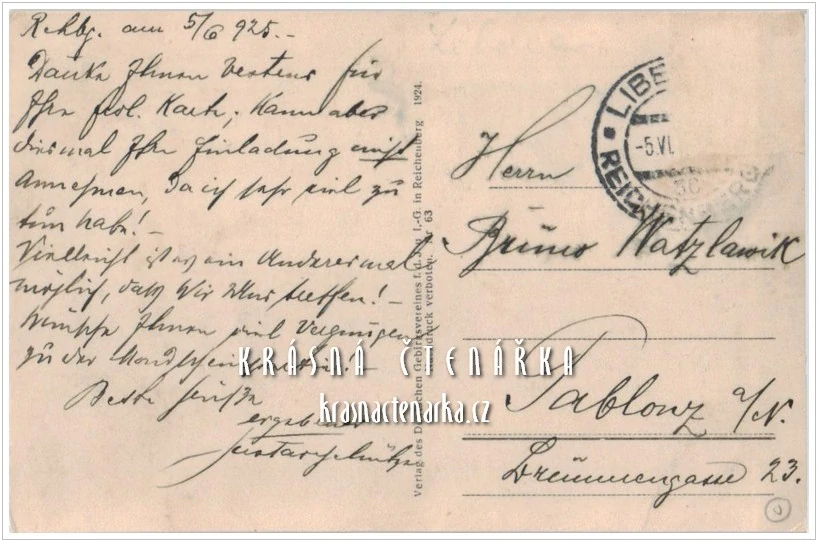 Rchbg. am 5/6 925.-
Danke Ihnen bestens für
Ihre frdl. Karte, kann aber
diesmal Ihre Einladung nicht
annehmen, da ich sehr viel zu
tun habe! -
Vielleicht ist es ein Anderesmal
möglich, dass wir uns treffen! -
Wünsche Ihnen viel Vergnügen
zu der
Beste Grüße
ergebener
Verlag des Deutschen Gebirgsvereines f. d. J.- u. I.-G. in Reichenberg 1924.
Nachdruck verboten. Nr 63
LIBE
-5.VI.
REICHENBERG
Herrn
Bruno Watzlawik
Gablonz a/N.
Brünnengasse 23.
KRÁSNÁ ČTENÁŘKA
krasnactenarka.cz